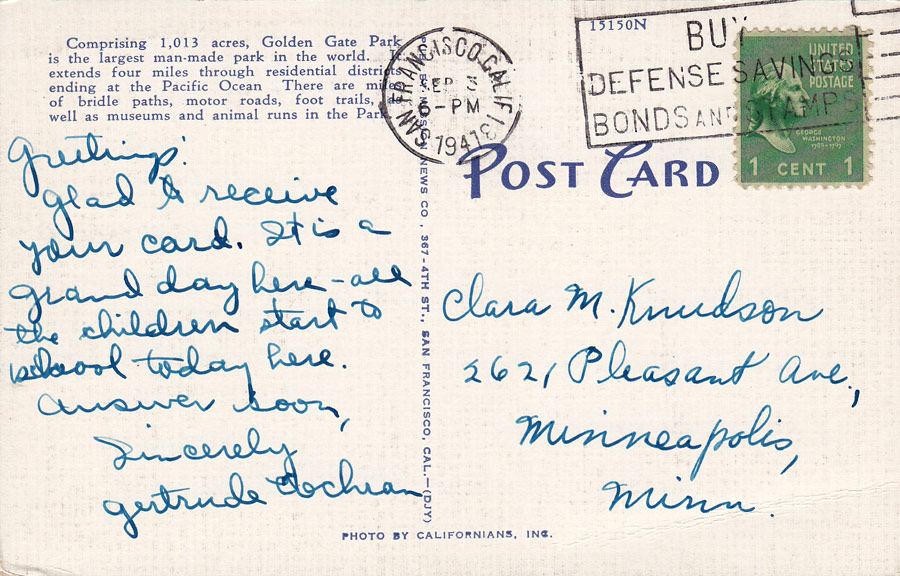 Comprising 1,013 acres, Golden Gate Park
is the largest man-made park in the world.
extends four miles through residential
ending at the Pacific Ocean There are
of bridle paths, motor roads, foot trails,
well as museums and animal runs in the Park.
SAN FRANCISCO, CALIF.
SEP 3
6-PM
1941
15150N
BUY
DEFENSE SAVINGS
BONDS AND STAMPS
UNITED
STATES
POSTAGE
GEORGE
WASHINGTON
1 CENT 1
POST CARD
Greetings!
Glad to receive
your card. It is a
grand day here - all
the children start to
school today here.
Answer soon,
Sincerely
Gertrude Cochran
NEWS CO., 367-4TH ST., SAN FRANCISCO, CAL.—(DJY)
Clara M. Knudson
2621 Pleasant Ave.,
Minneapolis,
Minn.
PHOTO BY CALIFORNIANS, INC.